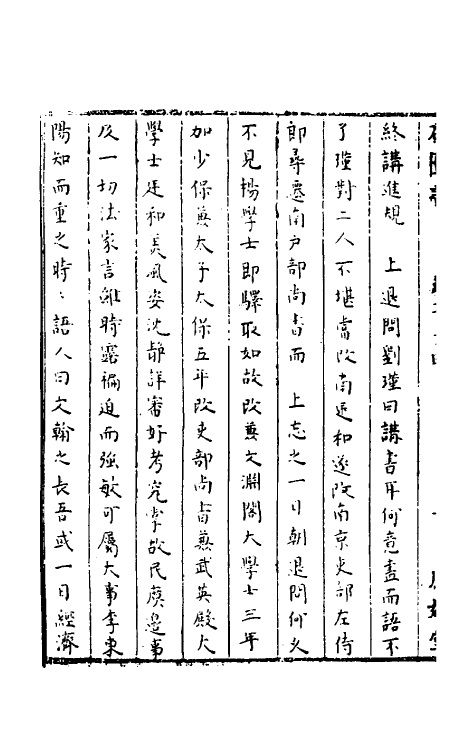 終講進規　上退問劉瑾曰講書耳何意盡而語不
了瑾對二人不堪當改南廷和遂改南京吏部左侍
郎尋遷南戶部尚書而　上忘之一日朝退問何久
不見楊學士即驛取如故改兼文淵閣大學士三年
加少保兼太子太保五年改吏部尚書兼武英殿大
學士廷和美風姿沈靜詳審好考究掌故民廣邊事
及一切法家言雖時露褊迫而強敏可屬大事李東
陽知而重之時〻語人曰文翰之長吾或一日經濟